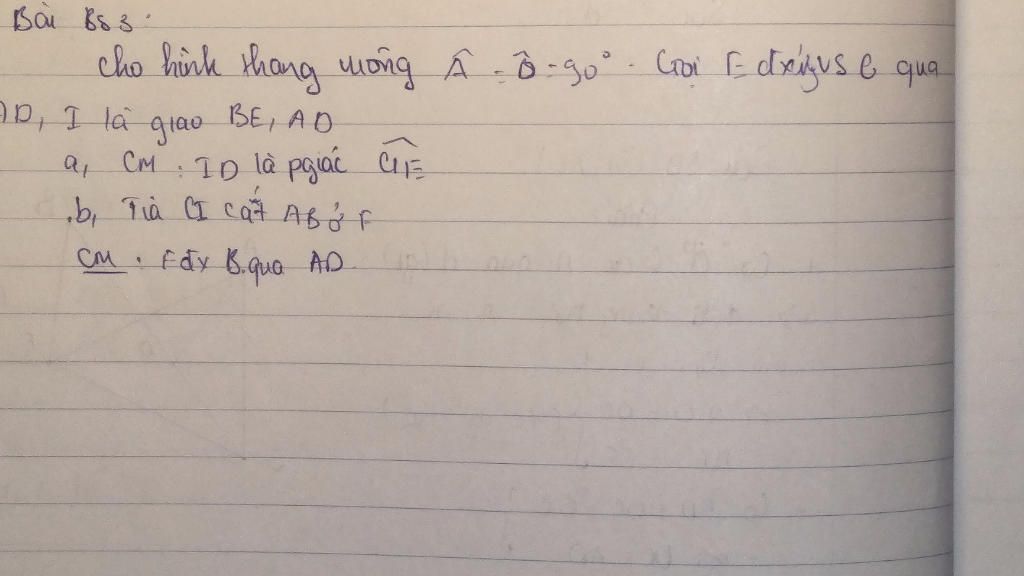 Bài BS 3:
Cho hình thang vuông Â = D̂ = 90°. Gọi E đxứng vs C qua
AD, I là giao BE, AD
a, CM: ID là pgiác CIE
b, Tia CI cắt AB ở F
CM: F đx B qua AD